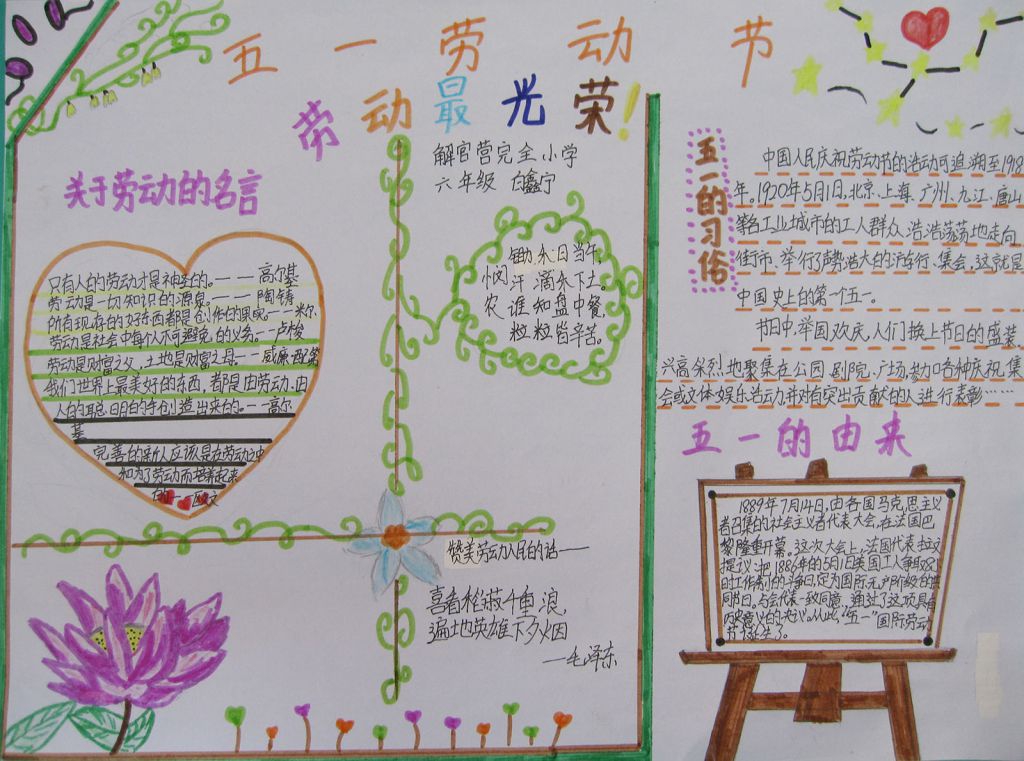 五一劳动节
劳动最光荣!
解官营完全小学
六年级 白鑫宁
关于劳动的名言
只有人的劳动才是神圣的。——高尔基
劳动是一切知识的源泉。——陶铸
所有现存的好东西都是创作的果实——米尔
劳动是社会中每个人不可避免的义务。——卢梭
劳动是财富之父,土地是财富之母——威廉·配第
我们世界上最美好的东西,都是由劳动、由
人的聪明的手创造出来的。——高尔
基
完善的新人应该是在劳动之中
和为了劳动而培养起来
的——欧文
锄禾日当午,
汗滴禾下土
谁知盘中餐
粒粒皆辛苦。
悯
农
赞美劳动人民的话——
喜看稻菽千重浪,
遍地英雄下夕烟
——毛泽东
五一的习俗
中国人民庆祝劳动节的活动可追溯至1918
年。1920年5月1日,北京、上海、广州、九江、唐山
等各工业城市的工人群众浩浩荡荡地走向
街市、举行了声势浩大的游行、集会,这就是
中国史上的第一个五一。
节日中,举国欢庆,人们换上节日的盛装,
兴高采烈地聚集在公园、剧院、广场,参加各种庆祝集
会或文体娱乐活动,并对有突出贡献的人进行表彰……
五一的由来
1889年7月14日,由各国马克思主义
者召集的社会主义者代表大会,在法国巴
黎隆重开幕。这次大会上,法国代表拉文
提议:把1886年的5月1日美国工人争取8小
时工作制的斗争日,定为国际无产阶级的共
同节日。与会代表一致同意,通过了这项具有
历史意义的决议。从此,“五一”国际劳动
节诞生了。